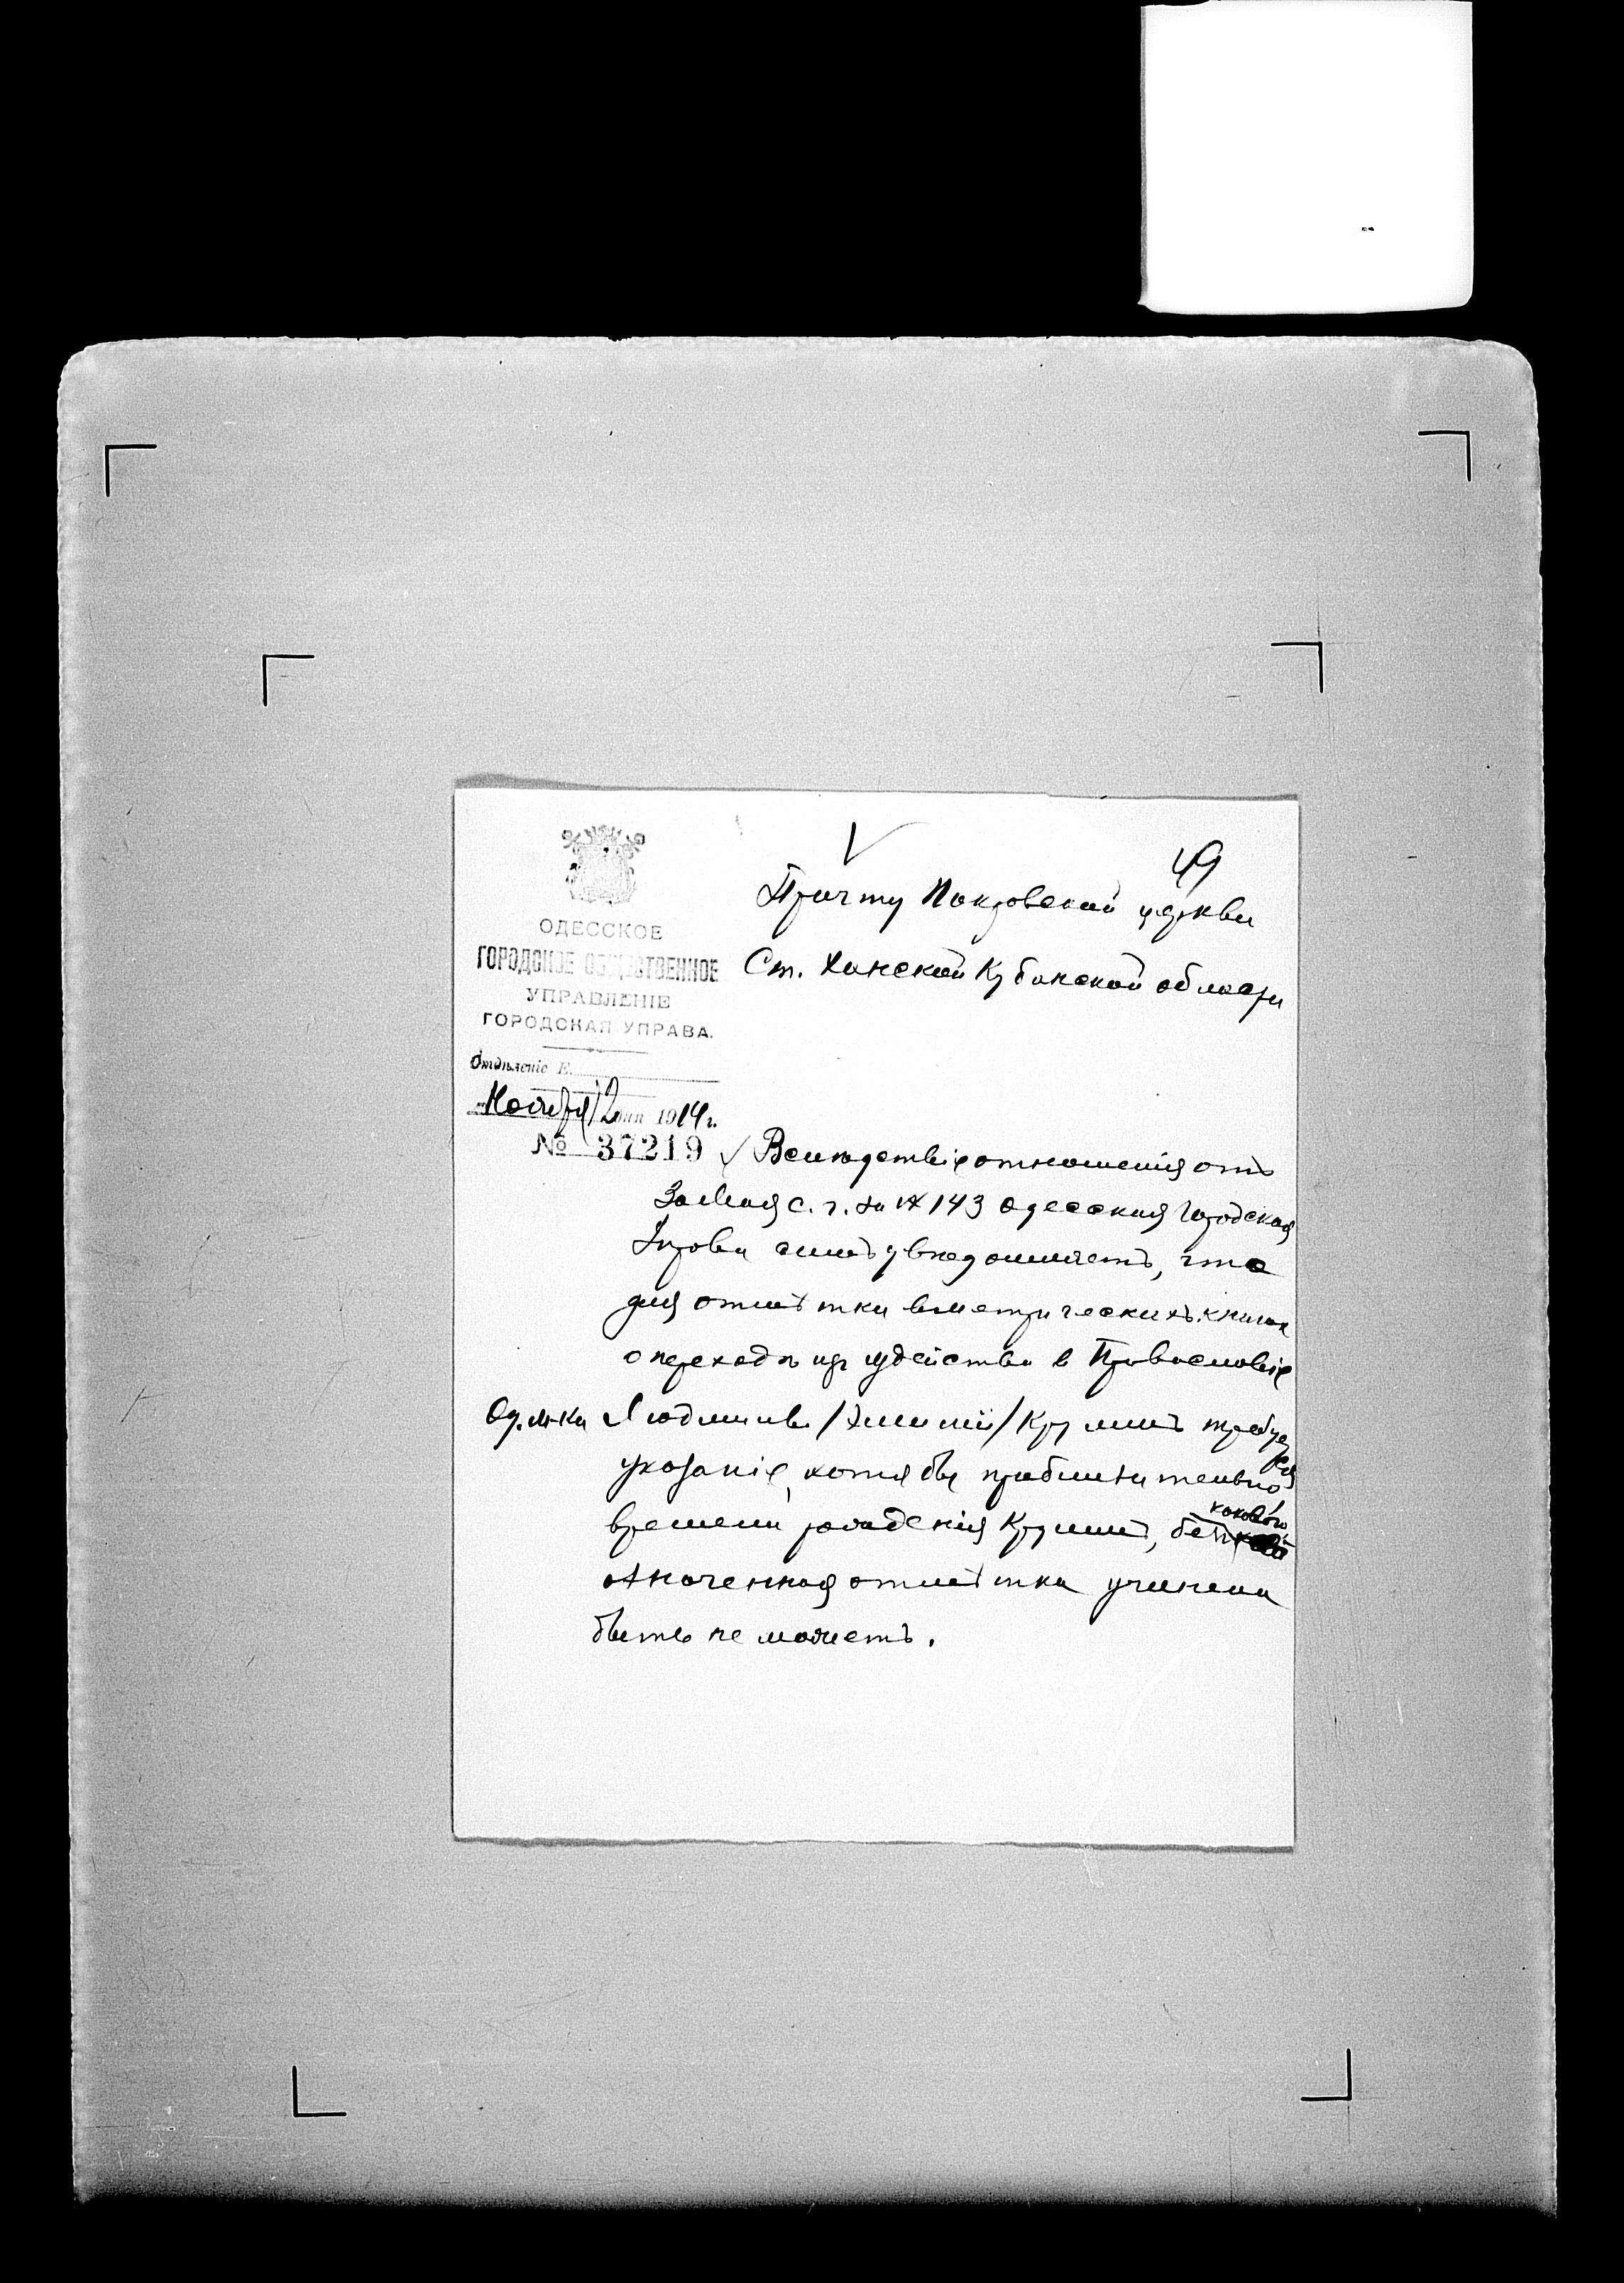 49
ОДЕССКОЕ
ГОРОДСКОЕ ОБЩЕСТВЕННОЕ
УПРАВЛЕНІЕ
ГОРОДСКАЯ УПРАВА.
Отдѣленіе Е.
Ноября 12 дня 1914 г.
№ 37219
Причту Покровской церкви
Ст. Ханской Кубанской области
Вслѣдствіе отношенія отъ
3 Мая с. г. за № 143 Одесская Городская
Управа симъ увѣдомляетъ, что
для отмѣтки в метрическихъ книгах
о переходѣ изъ іудейства в Православіе
Од. м-ки Людмилы /Эмиліи/ Крумъ требуется
указаніе, хотя бы приблизительно
времени рожденія Крумъ, без какового
означенная отмѣтка учинена
быть не можетъ.